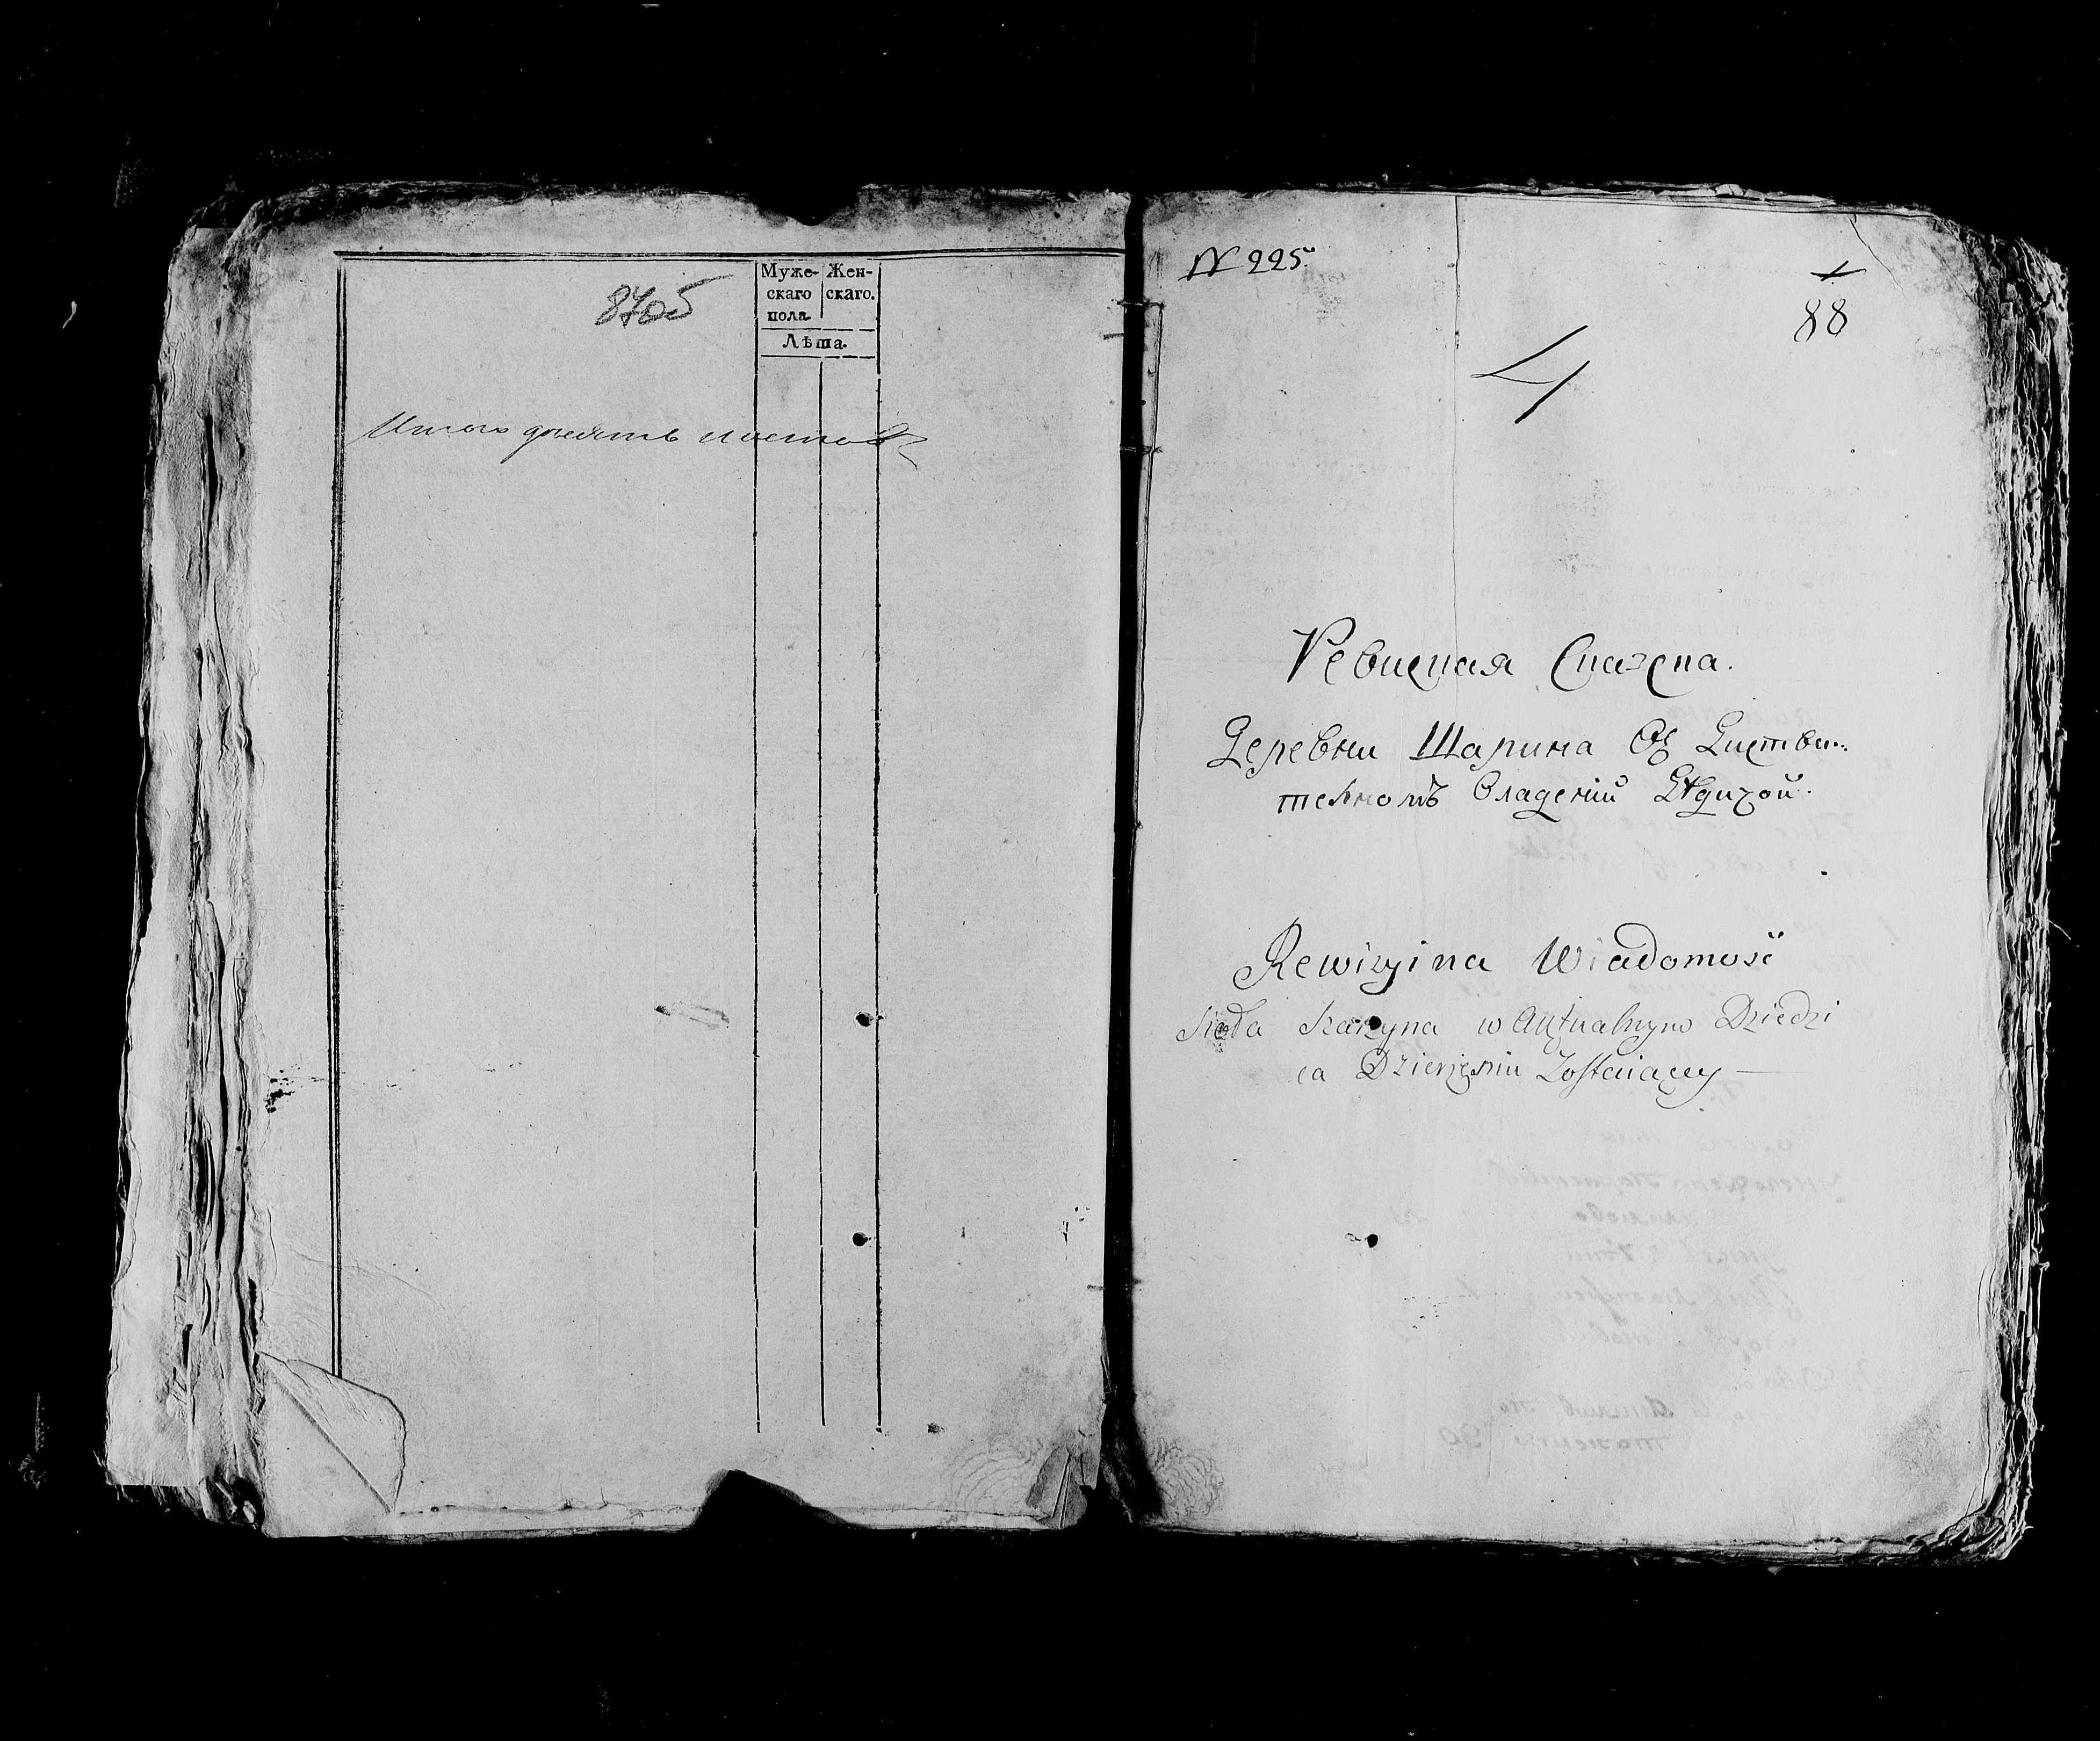 87об
Муже- Жен-
скаго скаго.
пола
Лѣта.
Итого девять листов
N 225.
1
88
4
Ревиская Сказска.
Деревни Шарина Въ Диства:
телномъ Владении
Rewizyina Wiadomość
Sioła Szaryna w Aktualnym Dziedzi
ca Dzierżeniu Zostaiącey